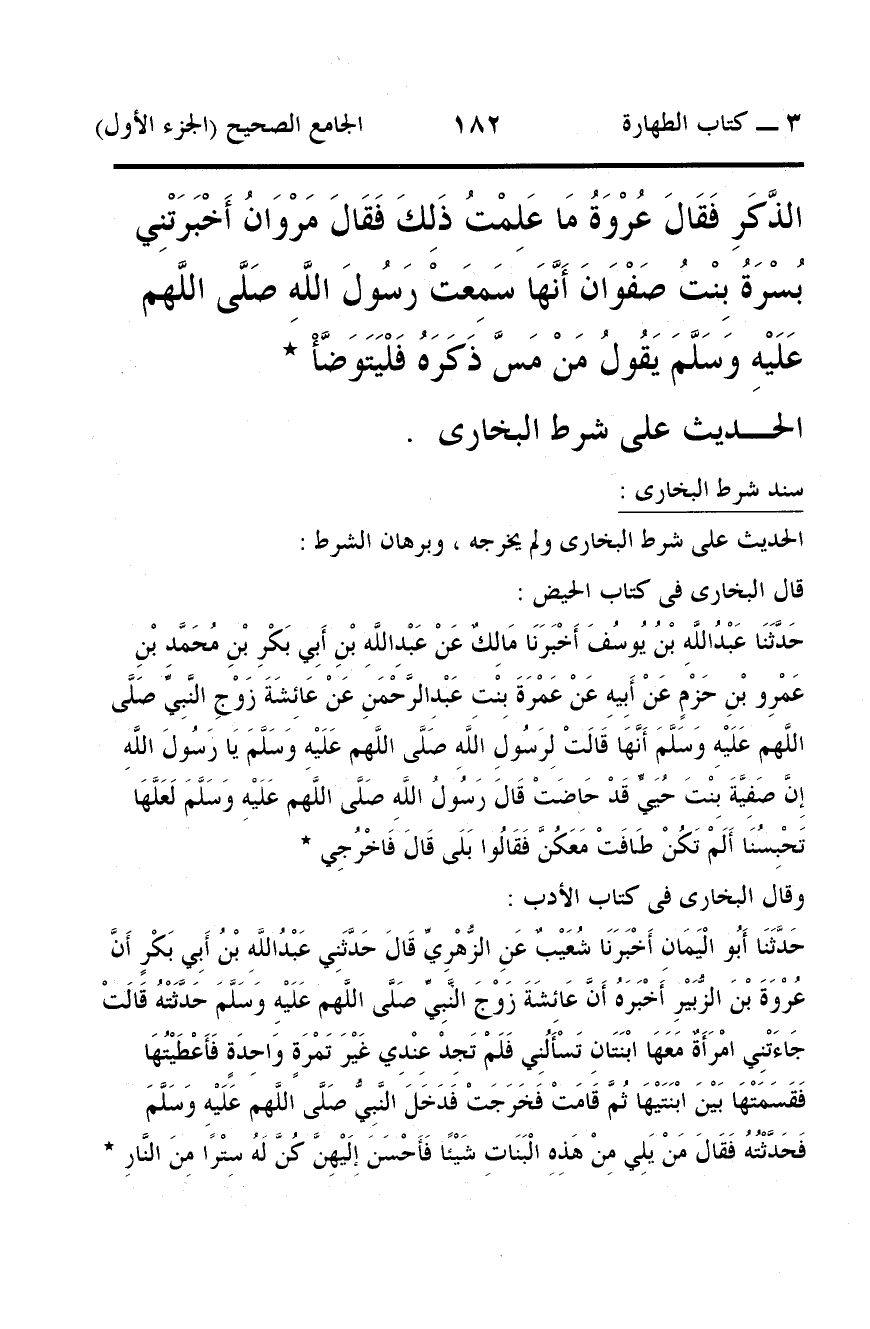 ٣ ــ كتاب الطهارة ١٨٢ الجامع الصحيح (الجزء الأول)
الذَّكَرِ فَقَالَ عُرْوَةُ مَا عَلِمْتُ ذَلِكَ فَقَالَ مَرْوَانُ أَخْبَرَتْنِي
بُسْرَةُ بِنْتُ صَفْوَانَ أَنَّهَا سَمِعَتْ رَسُولَ اللَّهِ صَلَّى اللَّهم
عَلَيْهِ وَسَلَّمَ يَقُولُ مَنْ مَسَّ ذَكَرَهُ فَلْيَتَوَضَّأْ *
الحـــديث على شرط البخارى .
سند شرط البخارى :
الحديث على شرط البخارى ولم يخرجه ، وبرهان الشرط :
قال البخارى فى كتاب الحيض :
حَدَّثَنَا عَبْدُاللَّهِ بْنُ يُوسُفَ أَخْبَرَنَا مَالِكٌ عَنْ عَبْدِاللَّهِ بْنِ أَبِي بَكْرِ بْنِ مُحَمَّدِ بْنِ
عَمْرِو بْنِ حَزْمٍ عَنْ أَبِيهِ عَنْ عَمْرَةَ بِنْتِ عَبْدِالرَّحْمَنِ عَنْ عَائِشَةَ زَوْجِ النَّبِيِّ صَلَّى
اللهم عَلَيْهِ وَسَلَّمَ أَنَّهَا قَالَتْ لِرَسُولِ اللَّهِ صَلَّى اللَّهم عَلَيْهِ وَسَلَّمَ يَا رَسُولَ اللَّهِ
إِنَّ صَفِيَّةَ بِنْتَ حُيَيٍّ قَدْ حَاضَتْ قَالَ رَسُولُ اللَّهِ صَلَّى اللهم عَلَيْهِ وَسَلَّمَ لَعَلَّهَا
تَحْبِسُنَا أَلَمْ تَكُنْ طَافَتْ مَعَكُنَّ فَقَالُوا بَلَى قَالَ فَاخْرُجِي *
وقال البخارى فى كتاب الأدب :
حَدَّثَنَا أَبُو الْيَمَانِ أَخْبَرَنَا شُعَيْبٌ عَنِ الزُّهْرِيِّ قَالَ حَدَّثَنِي عَبْدُاللَّهِ بْنُ أَبِي بَكْرٍ أَنَّ
عُرْوَةَ بْنَ الزُّبَيْرِ أَخْبَرَهُ أَنَّ عَائِشَةَ زَوْجَ النَّبِيِّ صَلَّى اللهم عَلَيْهِ وَسَلَّمَ حَدَّثَتْهُ قَالَتْ
جَاءَتْنِي امْرَأَةٌ مَعَهَا ابْنَتَانِ تَسْأَلُنِي فَلَمْ تَجِدْ عِنْدِي غَيْرَ تَمْرَةٍ وَاحِدَةٍ فَأَعْطَيْتُهَا
فَقَسَمَتْهَا بَيْنَ ابْنَتَيْهَا ثُمَّ قَامَتْ فَخَرَجَتْ فَدَخَلَ النَّبِيُّ صَلَّى اللهم عَلَيْهِ وَسَلَّمَ
فَحَدَّثْتُهُ فَقَالَ مَنْ يَلِي مِنْ هَذِهِ الْبَنَاتِ شَيْئًا فَأَحْسَنَ إِلَيْهِنَّ كُنَّ لَهُ سِتْرًا مِنَ النَّارِ *